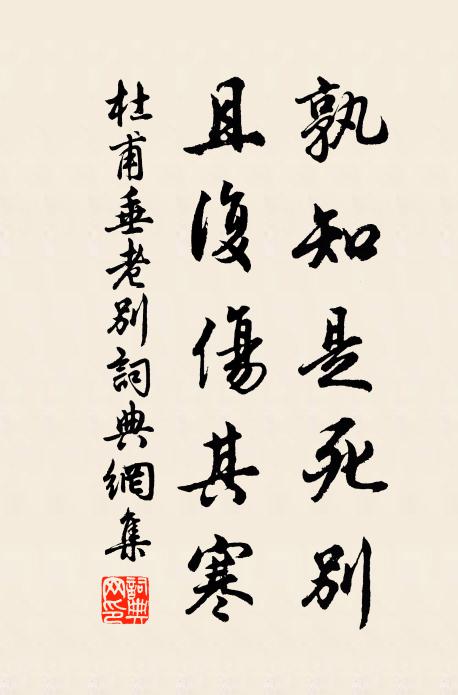 孰知是死別
且復傷其寒
杜甫垂老別詞典網集
詞典網印